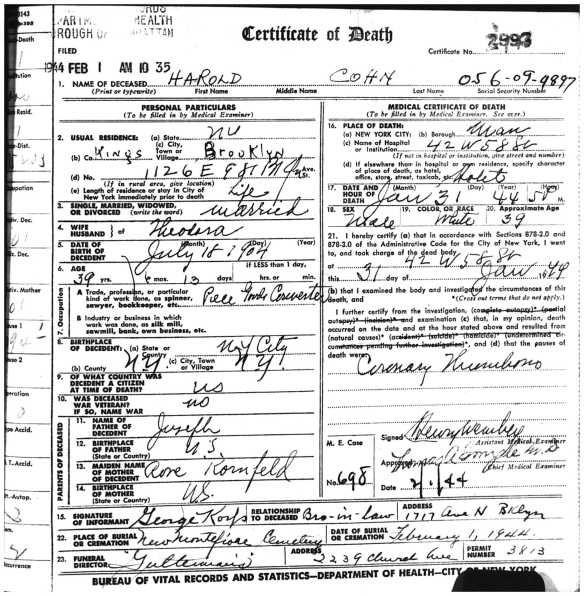 Certificate of Death
FILED
Certificate No. 2993
1944 FEB 1 AM 10 35
1. NAME OF DECEASED HAROLD COHN 056-09-9897
(Print or typewrite) First Name Middle Name Last Name Social Security Number
PERSONAL PARTICULARS
(To be filled in by Medical Examiner)
2. USUAL RESIDENCE: (a) State NY
(b) Co. Kings (c) City, Town or Village Brooklyn
(d) No. 1126 E 98th Ave. St.
(If in rural area, give location)
(e) Length of residence or stay in City of New York immediately prior to death Life
3. SINGLE, MARRIED, WIDOWED, OR DIVORCED (write the word) Married
4. WIFE HUSBAND of Theodora
5. DATE OF BIRTH OF DECEDENT (Month) (Day) (Year) July 18 1904
6. AGE 39 yrs. 6 mos. 13 days If LESS than 1 day, hrs. or min.
7. Occupation
A Trade, profession, or particular kind of work done, as spinner, sawyer, bookkeeper, etc. Piece Goods Converter
B Industry or business in which work was done, as silk mill, sawmill, bank, own business, etc.
8. BIRTHPLACE OF DECEDENT: (a) State or Country NY City
(b) County N.Y. (c) City, Town or Village N.Y.
9. OF WHAT COUNTRY WAS DECEDENT A CITIZEN AT TIME OF DEATH? US
10. WAS DECEASED WAR VETERAN? IF SO, NAME WAR no
PARENTS OF DECEASED
11. NAME OF FATHER OF DECEDENT Joseph
12. BIRTHPLACE OF FATHER (State or Country) U.S.
13. MAIDEN NAME OF MOTHER OF DECEDENT Rose Kornfeld
14. BIRTHPLACE OF MOTHER (State or Country) U.S.
MEDICAL CERTIFICATE OF DEATH
(To be filled in by Medical Examiner. See over.)
16. PLACE OF DEATH:
(a) NEW YORK CITY: (b) Borough Man
(c) Name of Hospital or Institution 42 W 58 St
(If not in hospital or institution, give street and number)
(d) If elsewhere than in hospital or own residence, specify character of place of death, as hotel, office, store, street, taxicab, etc. Hotel
17. DATE AND HOUR OF DEATH (Month) (Day) (Year) (Hour) Jan 31 44 M.
18. SEX Male 19. COLOR OR RACE White 20. Approximate Age 39
21. I hereby certify (a) that in accordance with Sections 878-2.0 and 878-3.0 of the Administrative Code for the City of New York, I went to, and took charge of the dead body
at 42 W 58 St
this 31 day of Jan 1944
(b) that I examined the body and investigated the circumstances of this death, and
*(Cross out terms that do not apply.)
I further certify from the investigation, (complete autopsy)* (partial autopsy)* (indication)* and examination (c) that, in my opinion, death occurred on the date and at the hour stated above and resulted from (natural causes)* (accident)* (suicide)* (homicide)* (undetermined circumstances pending further investigation)*, and (d) that the causes of death were:
Coronary Thrombosis
Signed
Assistant Medical Examiner
M. E. Case
Approved
Chief Medical Examiner
No. 698
Date 2/1/44
15. SIGNATURE OF INFORMANT George Korf RELATIONSHIP TO DECEASED Bro-in-Law ADDRESS 1717 Ave N Bklyn
22. PLACE OF BURIAL OR CREMATION New Montefiore Cemetery DATE OF BURIAL OR CREMATION February 1, 1944
23. FUNERAL DIRECTOR Gutterman's ADDRESS 2239 Church Ave PERMIT NUMBER 3813
BUREAU OF VITAL RECORDS AND STATISTICS—DEPARTMENT OF HEALTH—CITY OF NEW YORK